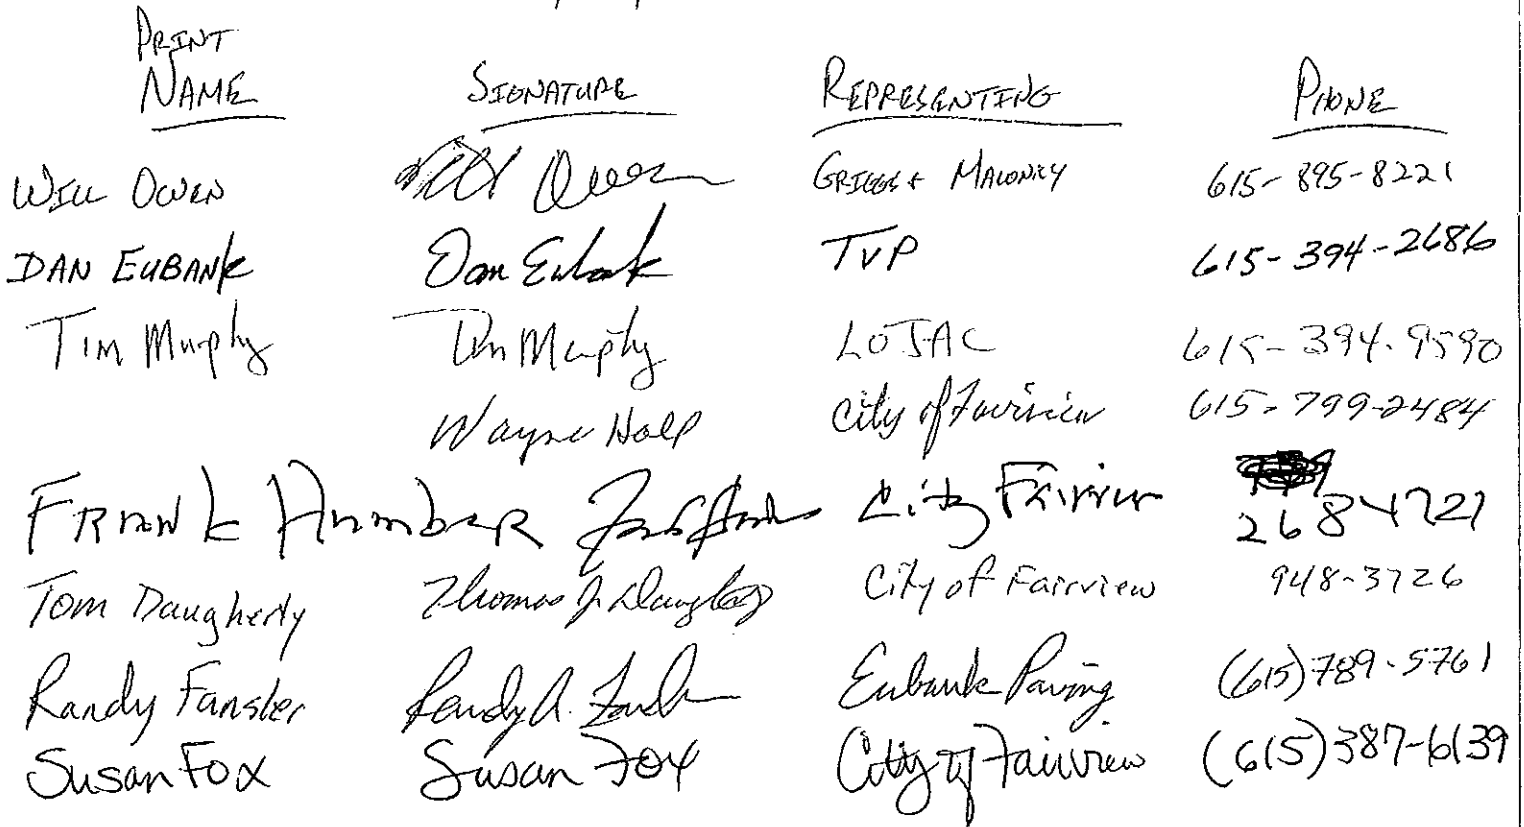 PRINT
NAME SIGNATURE REPRESENTING PHONE
WILL OWEN Will Owen GRIGGS & MALONEY 615-895-8221
DAN EUBANK Dan Eubank TVP 615-394-2686
TIM Murphy Tim Murphy LOJAC 615-394-9590
Wayne Hall City of Fairview 615-799-2484
FRANK Humber City Fairview 268 4721
Tom Daugherty Thomas J. Daugherty City of Fairview 948-3726
Randy Fansler Randy A. Eubank Paving (615) 789-5761
Susan Fox Susan Fox City of Fairview (615) 387-6139